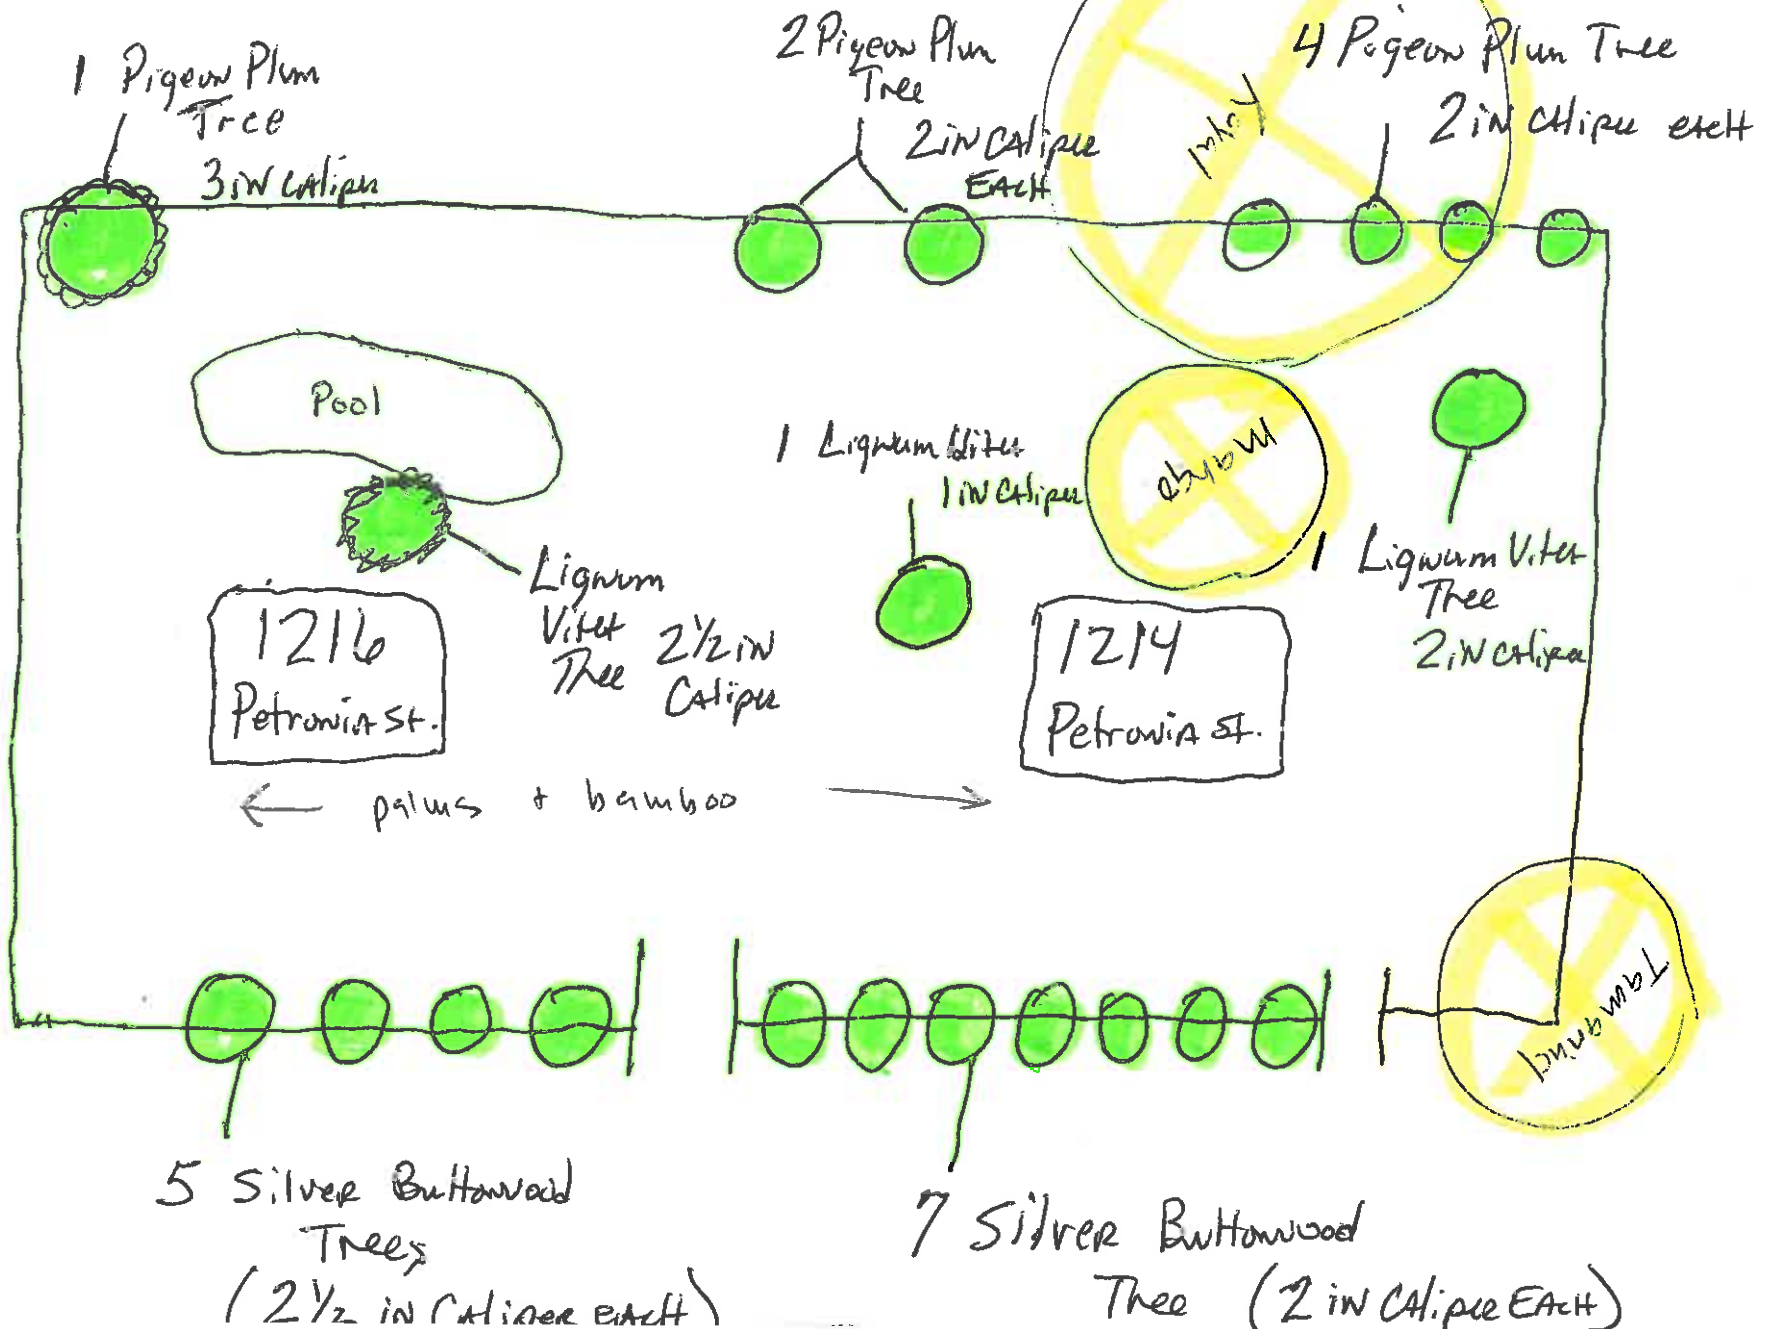 1 Pigeon Plum
Tree
3 in Caliper
2 Pigeon Plum
Tree
2 in Caliper
Each
4 Pigeon Plum Tree
2 in Caliper each
Pool
1 Lignum Vitet
1 in Caliper
Mahgo
1 Lignum Vitet
Tree
2 in Caliper
Lignum
Vitet
Tree 2 1/2 in
Caliper
1216
Petronia St.
1214
Petronia St.
← palms + bamboo →
Tamarind
5 Silver Buttonwood
Trees
(2 1/2 in Caliper Each)
7 Silver Buttonwood
Tree (2 in Caliper Each)